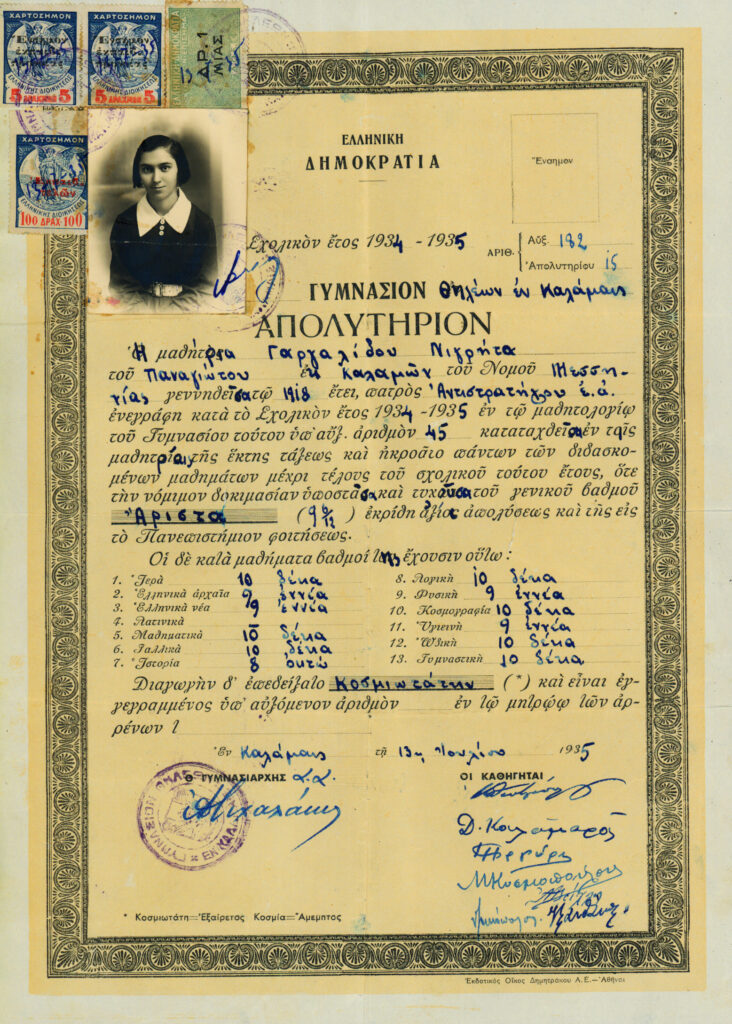 ΧΑΡΤΟΣΗΜΟΝ
5 ΔΡΑΧΜΑΙ 5
ΧΑΡΤΟΣΗΜΟΝ
5 ΔΡΑΧΜΑΙ 5
ΑΡ.1
ΜΙΑΣ
ΧΑΡΤΟΣΗΜΟΝ
ΕΛΛΗΝΙΚΗΣ ΔΙΟΙΚΗΣΕΩΣ
100 ΔΡΑΧ 100
ΕΛΛΗΝΙΚΗ
ΔΗΜΟΚΡΑΤΙΑ
Ἔνσημον
Σχολικὸν ἔτος 1934 - 1935
ΑΡΙΘ. Αὔξ. 182
Ἀπολυτηρίου 15
ΓΥΜΝΑΣΙΟΝ Θηλέων ἐν Καλάμαις
ΑΠΟΛΥΤΗΡΙΟΝ
Ἡ μαθήτρια Γαργαλίδου Νιγρήτα
τοῦ Παναγιώτου ἐκ Καλαμῶν τοῦ Νομοῦ Μεσση-
νίας γεννηθεῖσα τῷ 1918 ἔτει, πατρὸς Ἀντιστρατήγου ἐ.ἀ.
ἐνεγράφη κατὰ τὸ Σχολικὸν ἔτος 1934 - 1935 ἐν τῷ μαθητολογίῳ
τοῦ Γυμνασίου τούτου ὑπ' αὔξ. ἀριθμὸν 45 καταταχθεῖσα ἐν ταῖς
μαθητρίαις τῆς ἕκτης τάξεως καὶ ἠκροᾶτο πάντων τῶν διδασκο-
μένων μαθημάτων μέχρι τέλους τοῦ σχολικοῦ τούτου ἔτους, ὅτε
τὴν νόμιμον δοκιμασίαν ὑποστᾶσα καὶ τυχοῦσα τοῦ γενικοῦ βαθμοῦ
Ἄριστα (9 6/12) ἐκρίθη ἀξία ἀπολύσεως καὶ τῆς εἰς
τὸ Πανεπιστήμιον φοιτήσεως.
Οἱ δὲ κατὰ μαθήματα βαθμοὶ της ἔχουσιν οὕτω :
1. Ἱερὰ 10 δέκα
2. Ἑλληνικὰ ἀρχαῖα 9 ἐννέα
3. Ἑλληνικὰ νέα 9 ἐννέα
4. Λατινικὰ
5. Μαθηματικὰ 10 δέκα
6. Γαλλικὰ 10 δέκα
7. Ἱστορία 8 ὀκτώ
8. Λογικὴ 10 δέκα
9. Φυσικὴ 9 ἐννέα
10. Κοσμογραφία 10 δέκα
11. Ὑγιεινὴ 9 ἐννέα
12. Ὠδικὴ 10 δέκα
13. Γυμναστικὴ 10 δέκα
Διαγωγὴν δ' ἐπεδείξατο Κοσμιωτάτην (*) καὶ εἶναι ἐγ-
γεγραμμένος ὑπ' αὐξόμενον ἀριθμὸν ἐν τῷ μητρώῳ τῶν ἀρ-
ρένων τ
Ἐν Καλάμαις τῇ 13ῃ Ἰουλίου 1935
Ὁ ΓΥΜΝΑΣΙΑΡΧΗΣ α.α.
ΟΙ ΚΑΘΗΓΗΤΑΙ
* Κοσμιωτάτη=Ἐξαίρετος Κοσμία=Ἄμεμπτος
Ἐκδοτικὸς Οἶκος Δημητράκου Α.Ε.—Ἀθῆναι